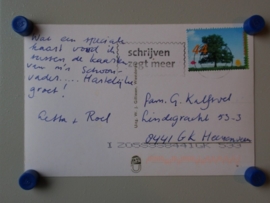 Wat een speciale
kaart vond ik
tussen de kaarten
van m'n schoon-
vader.... Hartelijke
groet!
Roel
schrijven
zegt meer
Fam. G. Kalfsvel
Lindegracht 53-3
8441 GK Heerenveen